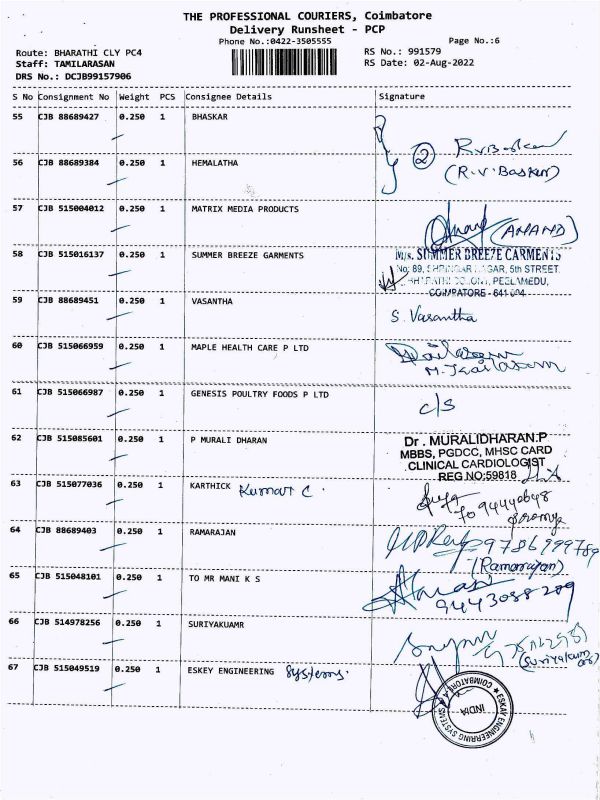 THE PROFESSIONAL COURIERS, Coimbatore
Delivery Runsheet - PCP
Phone No.:0422-3505555 Page No.:6
Route: BHARATHI CLY PC4 RS No.: 991579
Staff: TAMILARASAN RS Date: 02-Aug-2022
DRS No.: DCJB99157906
S No Consignment No Weight PCS Consignee Details Signature
55 CJB 88689427 0.250 1 BHASKAR
2
(R.V. Basker)
56 CJB 88689384 0.250 1 HEMALATHA
57 CJB 515004012 0.250 1 MATRIX MEDIA PRODUCTS
(ANAND)
58 CJB 515016137 0.250 1 SUMMER BREEZE GARMENTS
M/s. SUMMER BREEZE GARMENTS
No: 89, SHRINGAR NAGAR, 5th STREET,
BHARATHI COLONY, PEELAMEDU,
COIMBATORE - 641 004
59 CJB 88689451 0.250 1 VASANTHA
S. Vasantha
60 CJB 515066959 0.250 1 MAPLE HEALTH CARE P LTD
61 CJB 515066987 0.250 1 GENESIS POULTRY FOODS P LTD
c/s
62 CJB 515085601 0.250 1 P MURALI DHARAN
Dr . MURALIDHARAN.P
MBBS, PGDCC, MHSC CARD
CLINICAL CARDIOLOGIST
REG NO:59818
63 CJB 515077036 0.250 1 KARTHICK Kumar C.
64 CJB 88689403 0.250 1 RAMARAJAN
9786999789
(Ramarajan)
65 CJB 515048101 0.250 1 TO MR MANI K S
9443088209
66 CJB 514978256 0.250 1 SURIYAKUAMR
(Suriyakumar)
67 CJB 515049519 0.250 1 ESKEY ENGINEERING Systems.
ESKAY ENGINEERING SYSTEMS
COIMBATORE
INDIA